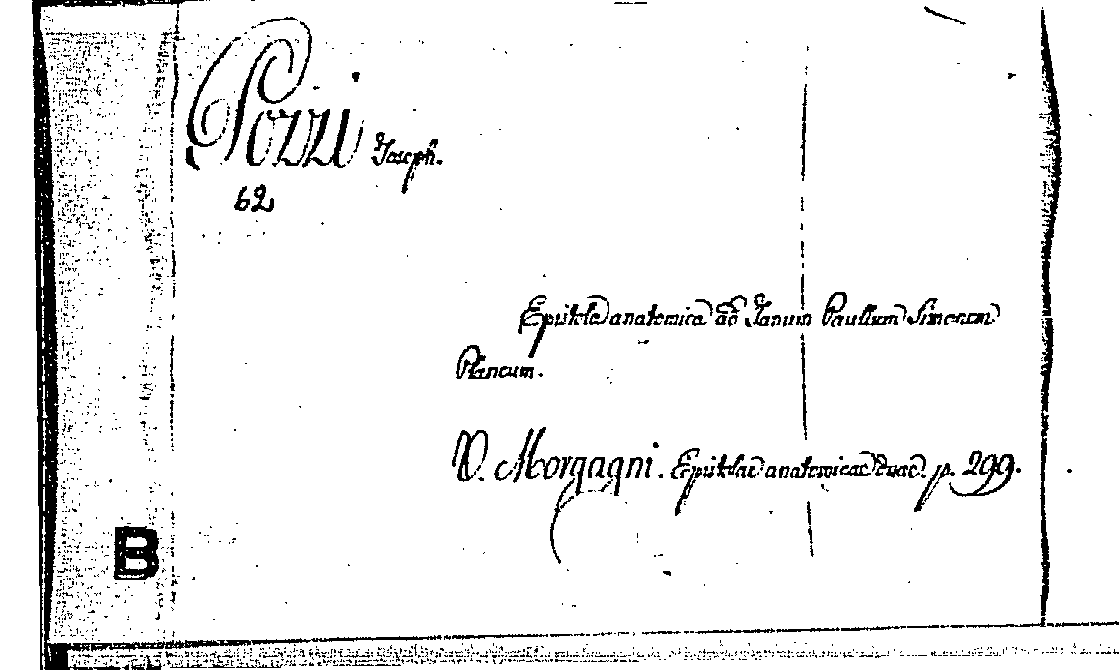 Pozzi Joseph.
62
Epistola anatomica ad Janum Paullum Simonem
Plancum.
V. Morgagni. Epistolae anatomicae duae. p. 299.
B